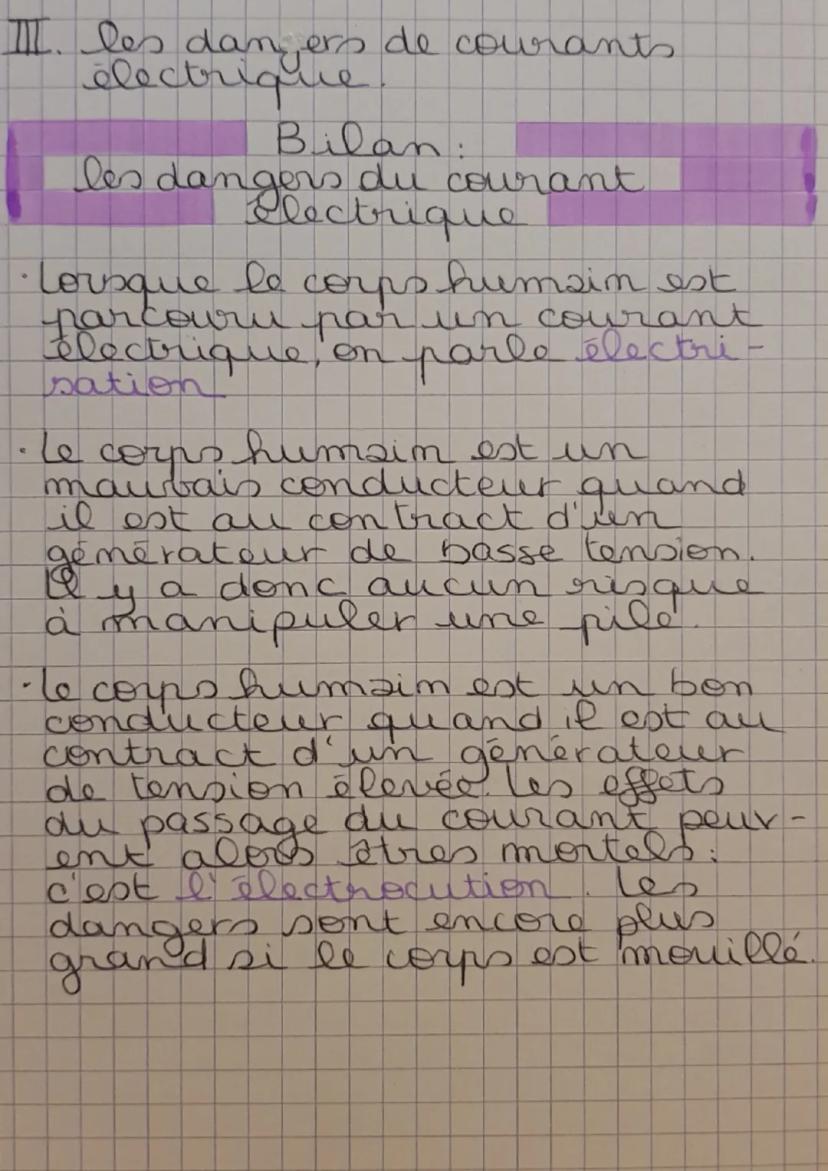 III. les dangers de courants
électrique.
Bilan :
les dangers du courant
électrique
· Lorsque le corps humain est
parcouru par un courant
électrique, on parle électri-
sation
· Le corps humain est un
mauvais conducteur quand
il est au contract d'un
générateur de basse tension.
Il y a donc aucun risque
à manipuler une pile.
· Le corps humain est un bon
conducteur quand il est au
contract d'un générateur
de tension élevée. les effets
du passage du courant peuv-
ent alors êtres mortels :
c'est l'électrocution. Les
dangers sont encore plus
grand si le corps est mouillé.